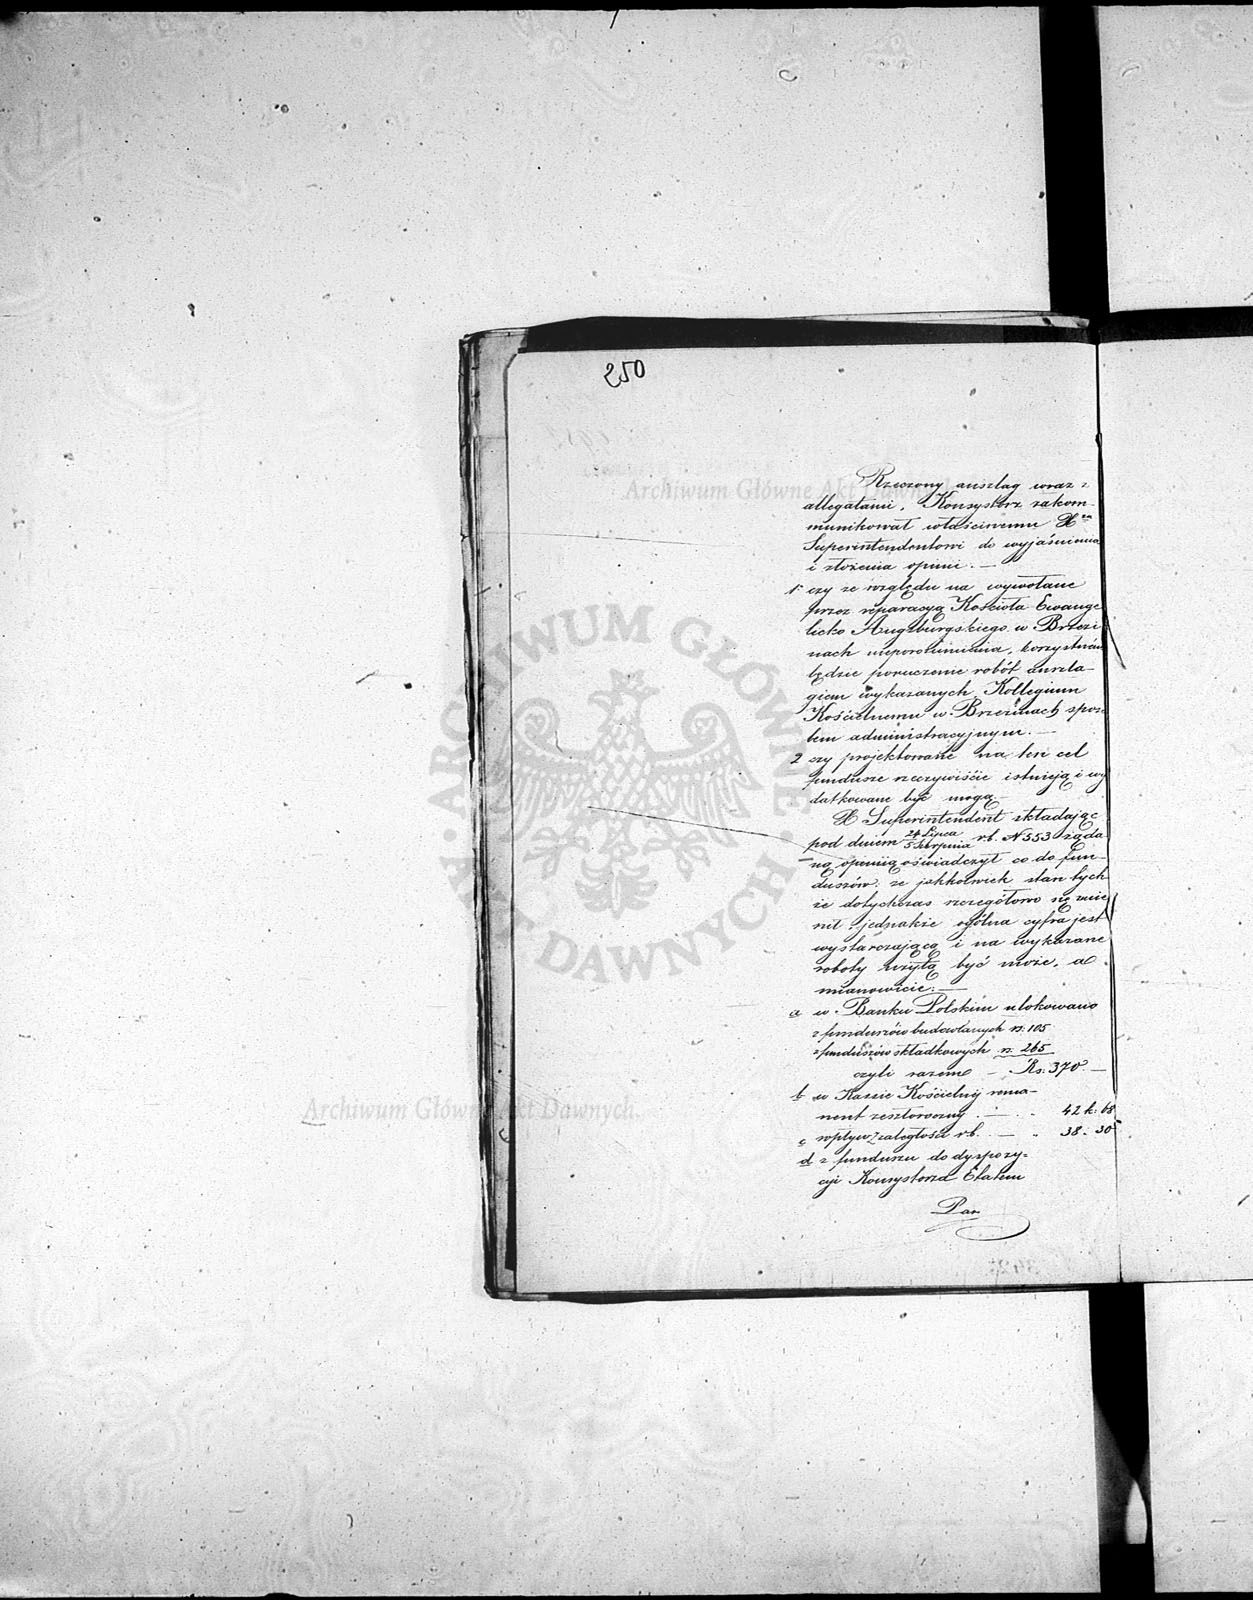 250
Rzeczony anszlag wraz z
allegatami, Konsystorz zakom-
munikował właściwemu X.
Superintendentowi do wyjaśnienia
i złożenia opinii. —
1. czy ze względu na wywołane
przez reparacyą Kościoła Ewange
licko Augsburgskiego w Brzezi
nach nieporozumienia, korzystném
będzie poruczenie robót anszla-
giem wykazanych, Kollegium
Kościelnemu w Brzezinach sposo
bem administracyjnym. —
2 czy projektowane na ten cel
fundusze rzeczywiście istnieją i wy
datkowane być mogą. —
X Superintendent składając
pod dniem 24 Lipca / 5 Sierpnia r.b. N 553 żąda
ną opinią oświadczył co do fun-
duszów: że jakkolwiek stan tych
że dotychczas szczegółowo się zmie
nił, jednakże ogólna cyfra jest
wystarczającą i na wykazane
roboty użytą być może, a
mianowicie: —
a w Banku Polskim ulokowano
z funduszów budowlanych rs. 105
z funduszów składkowych rs. 265
czyli razem — Rs. 370 —
b w Kassie Kościelnéj rema-
nent zeszłoroczny . — . „ 42 k. 68
c wpływ z zaległości r.b. . — „ 38. 30
d z funduszu do dyspozy-
cyi Konsystorza Etatem
Archiwum Główne Akt Dawnych
Archiwum Główne Akt Dawnych
ARCHIWUM GŁÓWNE AKT DAWNYCH